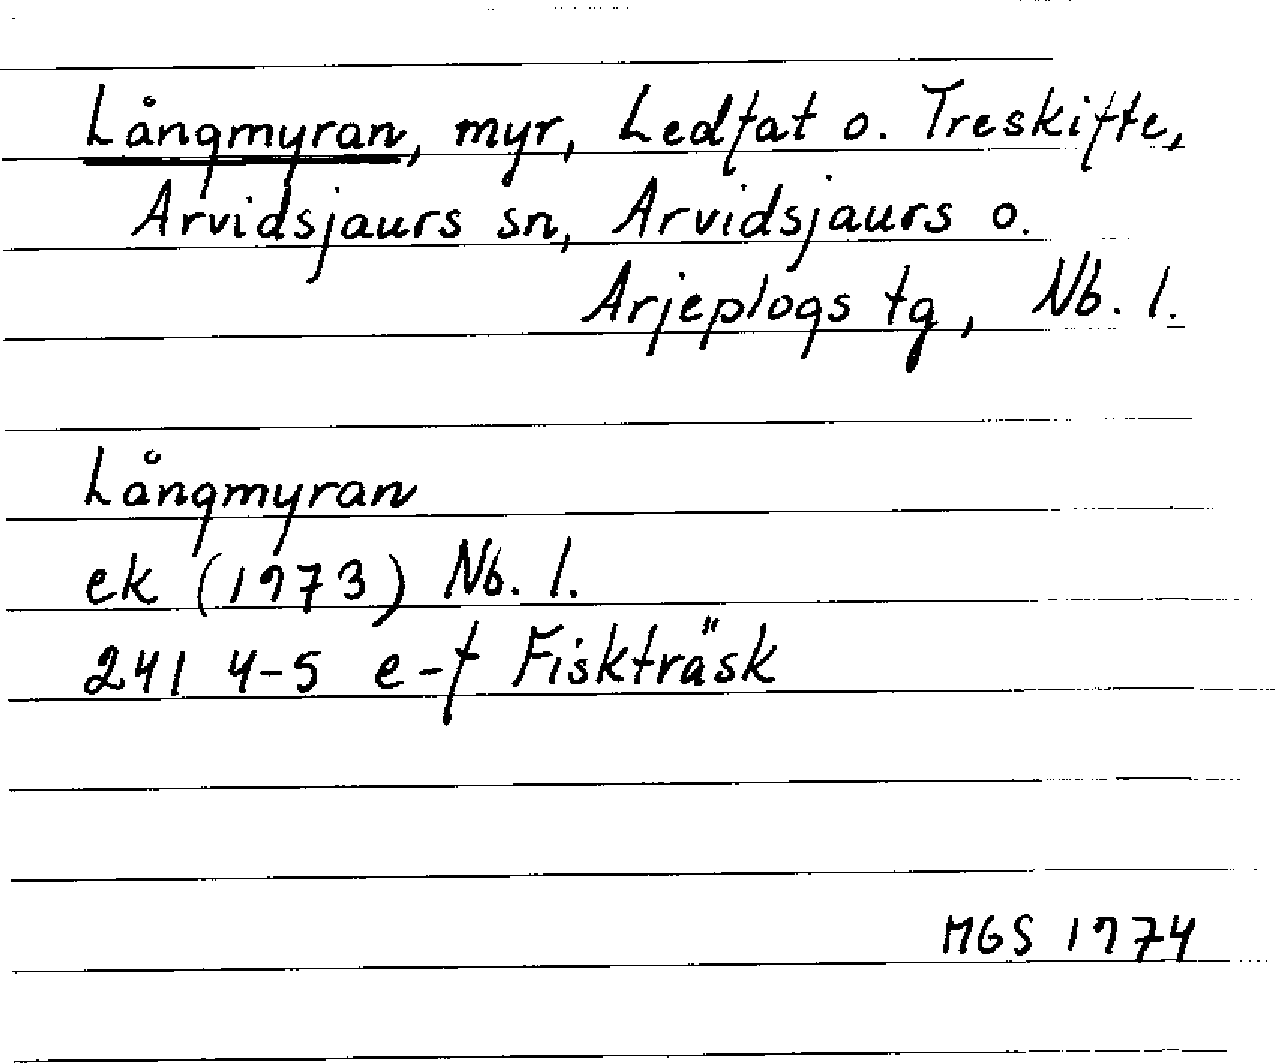 Långmyran, myr, Ledfat o. Treskifte,
Arvidsjaurs sn, Arvidsjaurs o.
Arjeplogs tg, Nb. l.
Långmyran
ek (1973) Nb. l.
241 4-5 e-f Fiskträsk
MGS 1974